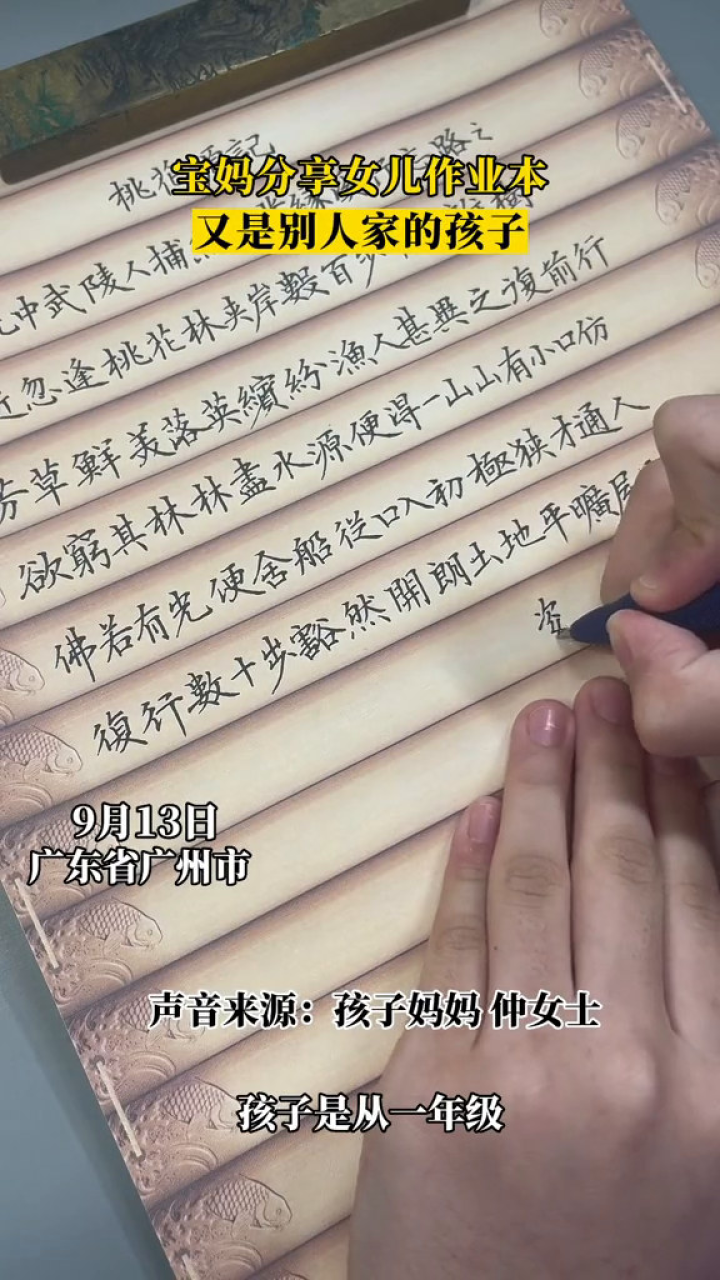 桃花源記
宝妈分享女儿作业本
又是别人家的孩子
中武陵人捕 緣 路之
近忽逢桃花林夹岸數百步
芳草鮮美落英繽紛漁人甚異之復前行
欲窮其林林盡水源便得一山山有小口仿
佛若有光便舍船從口入初極狭才通人
復行數十步豁然開朗土地平曠屋
9月13日
广东省广州市
声音来源：孩子妈妈 仲女士
孩子是从一年级